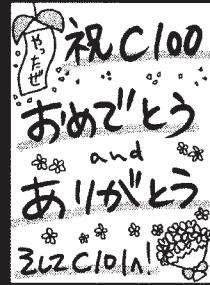 やったぜ
祝C100
おめでとう
and
ありがとう
そしてC101へ!